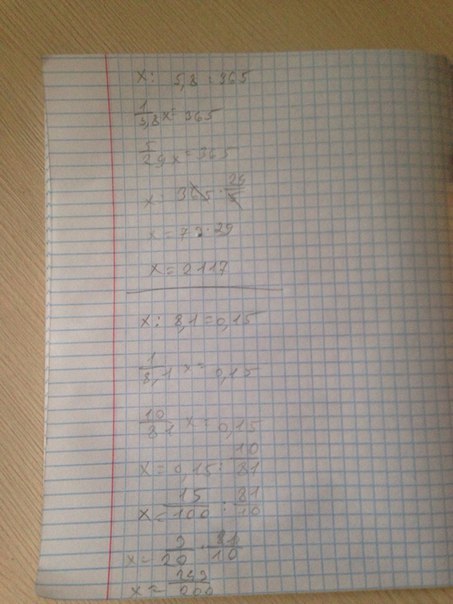 x : 5,8 = 365
1/5,8 x = 365
5/29 x = 365
x = 365 · 29/5
x = 73 · 29
x = 2117
x : 8,1 = 0,15
1/8,1 x = 0,15
10/81 x = 0,15
x = 0,15 : 10/81
x = 15/100 : 81/10
x = 3/20 · 81/10
x = 243/200